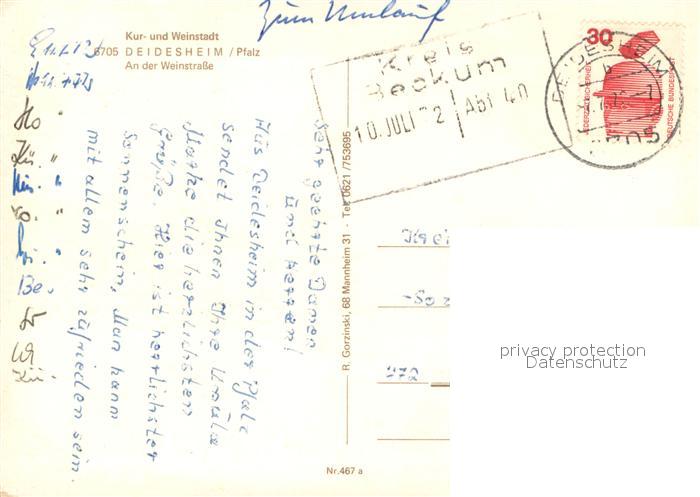 Zum Umlauf
Kur- und Weinstadt
6705 DEIDESHEIM / Pfalz
An der Weinstraße
Kreis
Beckum
10. JULI 72 Abt 40
30
DEUTSCHE BUNDESPOST
DEIDESHEIM
6705
Sehr geehrte Damen
und Herren!
Aus Deidesheim in der Pfalz
sendet Ihnen Ihre
die herzlichsten
Grüße. Hier ist herrlichster
Sonnenschein, Man kann
mit allem sehr zufrieden sein.
Ho "
Kü. "
"
Vo. "
"
Be.
Kü.
R. Gorzinski, 68 Mannheim 31 - Tel. 0621/753695
Nr. 467 a
Krei
-Soz
472
privacy protection
Datenschutz